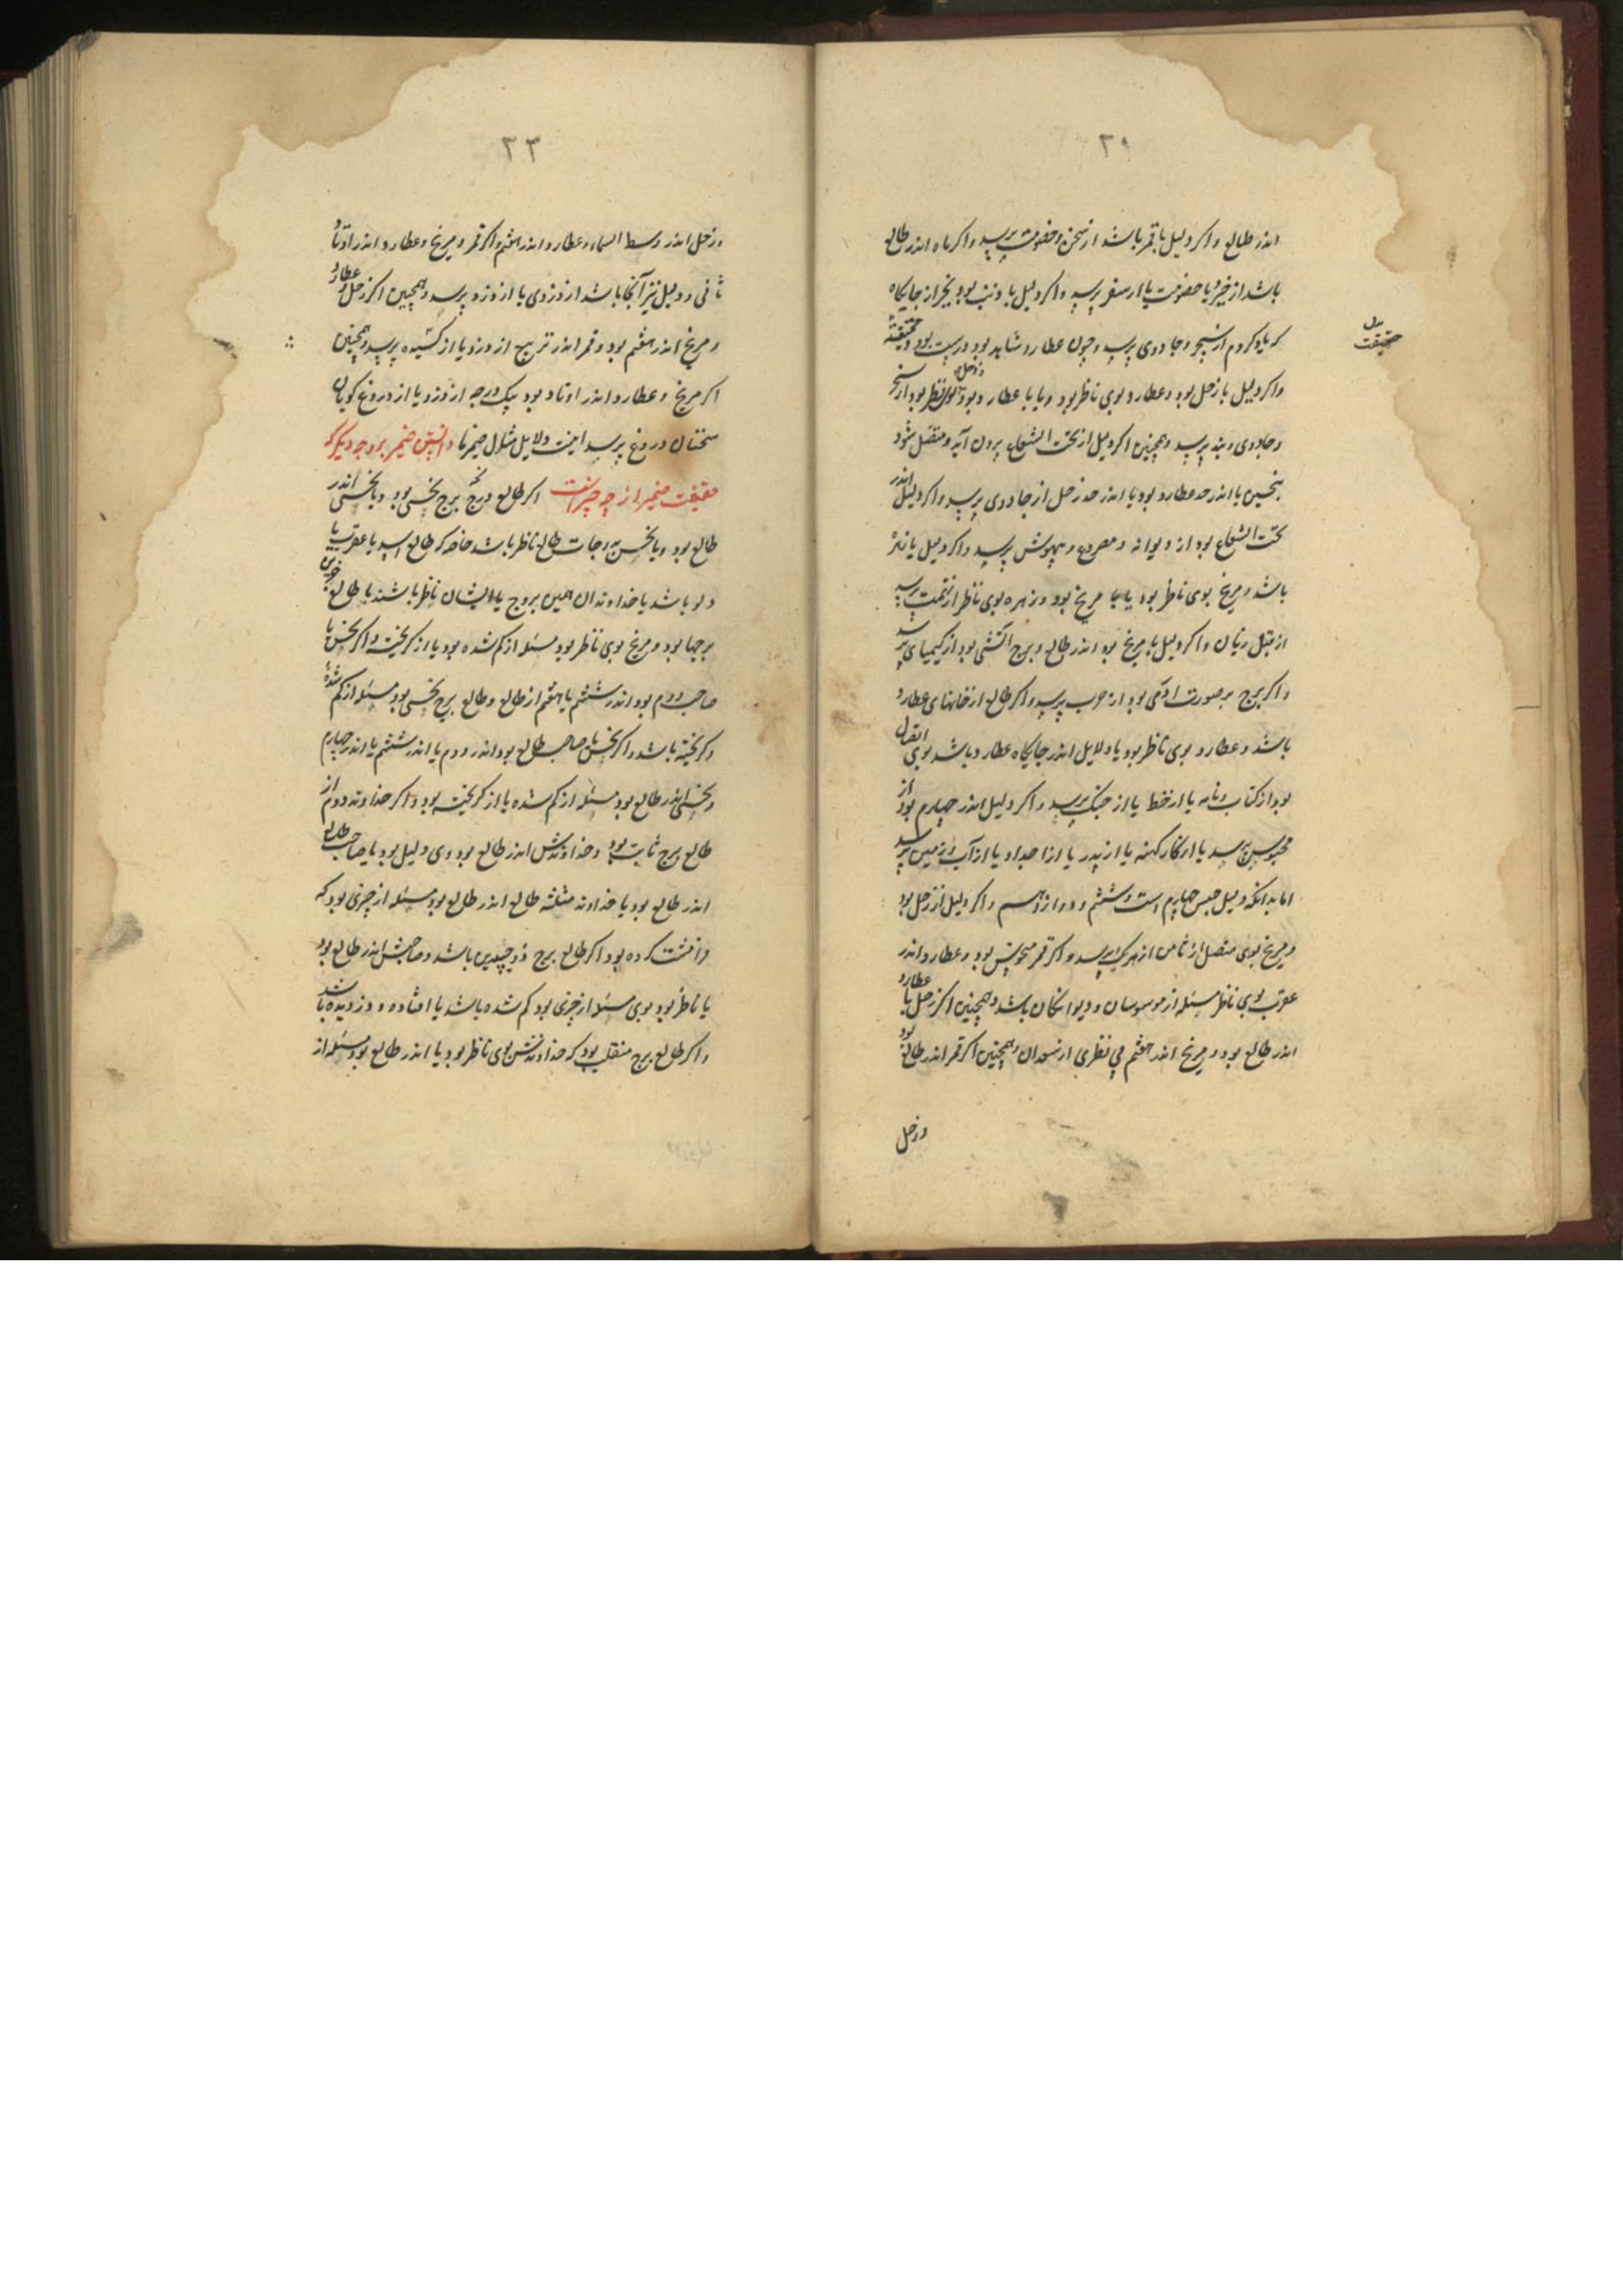 ۲۰
اندر طالع و اکر دلیل با قمر باشد از سخن و خصومت پرسد و اکر ماه اندر طالع
باشد از خبر و یا خصومت یا از سفر پرسد و اکر دلیل با ذنب بود بجز از جایکاه
که یاد کردم از سحر و جادوی پرسد و چون عطارد شاهد بود درست بود و حقیقة
بدل حقیقت
واکر دلیل با زحل بود و عطارد بوی ناظر بود و یا با عطارد بود و زحل بوی ناظر بود از سحر
و جادوی و بند پرسد و همچنین اکر دلیل از تحت الشعاع برون آید و متصل شود
بنحسین یا اندر حد عطارد بود یا اندر حد زحل از جادوی پرسد و اکر دلیل اندر
تحت الشعاع بود از دیوانه و مصروع و بیهوش پرسد و اکر دلیل با زهره
باشد و مریخ بوی ناظر بود یا با مریخ بود و زهره بوی ناظر از تهمت پرسد
از قبل زنان و اکر دلیل با مریخ بود اندر طالع و برج آتشی بود از کیمیای پرسد
و اکر برج بر صورت آدمی بود از حرب پرسد و اکر طالع از خانهای عطارد
باشد و عطارد بوی ناظر بود یا دلایل اندر جایکاه عطارد باشد بوی اتصال
بود از کتاب و نامه یا از خط یا از جنک پرسد و اکر دلیل اندر چهارم بود از
محبوس پرسد یا از کار کهنه یا از پدر یا از اجداد یا از آب و زمین پرسد
اما بدانکه دلیل حبس چهارم است و ششم و دوازدهم و اکر دلیل از زحل بود
و مریخ بوی متصل از ثامن از مرک پرسد و اکر قمر منحوس بود و عطارد اندر
عقرب بوی ناظر مسئله از موسوسان و دیوانکان باشد و همچنین اکر زحل با عطارد
اندر طالع بود و مریخ اندر هفتم بی نظری از سعدان و همچنین اکر قمر اندر طالع بود
و زحل
۲۳
و زحل اندر وسط السماء و عطارد اندر هفتم و اکر قمر و مریخ و عطارد اندر اوتاد
ثانی و دلیل نیز آنجا باشد از دزدی یا از دزد پرسد و همچنین اکر زحل و عطارد
و مریخ اندر هفتم بود و قمر اندر تربیع از دزد یا از کشیده پرسد و همچنین
اکر مریخ و عطارد اندر اوتاد بود بیک درجه از دزد یا از دروغ کویان
سخنان دروغ پرسد اینست دلایل شکل ضمیرها دانستن ضمیر بر وجه دیکر که
حقیقت ضمیر از چه چیز است اکر طالع برج نحسی بود و یا نحسی اندر
طالع بود و یا نحسی بدرجات طالع ناظر باشد خاصه که طالع اسد یا عقرب یا
دلو باشد یا خداوندان همین بروج یا ایشان ناظر باشند با طالع
برجها بود و مریخ بوی ناظر بود مسئله از کم شده بود یا از کریخته و اکر نحس با
صاحب دوم بود اندر ششم یا هفتم از طالع و طالع برج نحسی بود مسئله از کم شده
و کریخته باشد و اکر نحس با صاحب طالع بود اندر دوم یا اندر ششم یا اندر چهارم
و نحسی اندر طالع بود مسئله از کم شده یا از کریخته بود و اکر خداوند دوم از
طالع برج ثابت بود و خداوندش اندر طالع بود و وی دلیل بود یا صاحب طالع
اندر طالع بود یا خداوند مثلثه طالع اندر طالع بود مسئله از چیزی بود که
کرده بود اکر طالع برج ذو جسدین باشد و صاحبش اندر طالع بود
یا ناظر بود بوی مسئله از چیزی بود کم شده باشد یا افتاده و دزدیده باشد
و اکر طالع برج منقلب بود که خداوندش بوی ناظر بود یا اندر طالع بود مسئله از